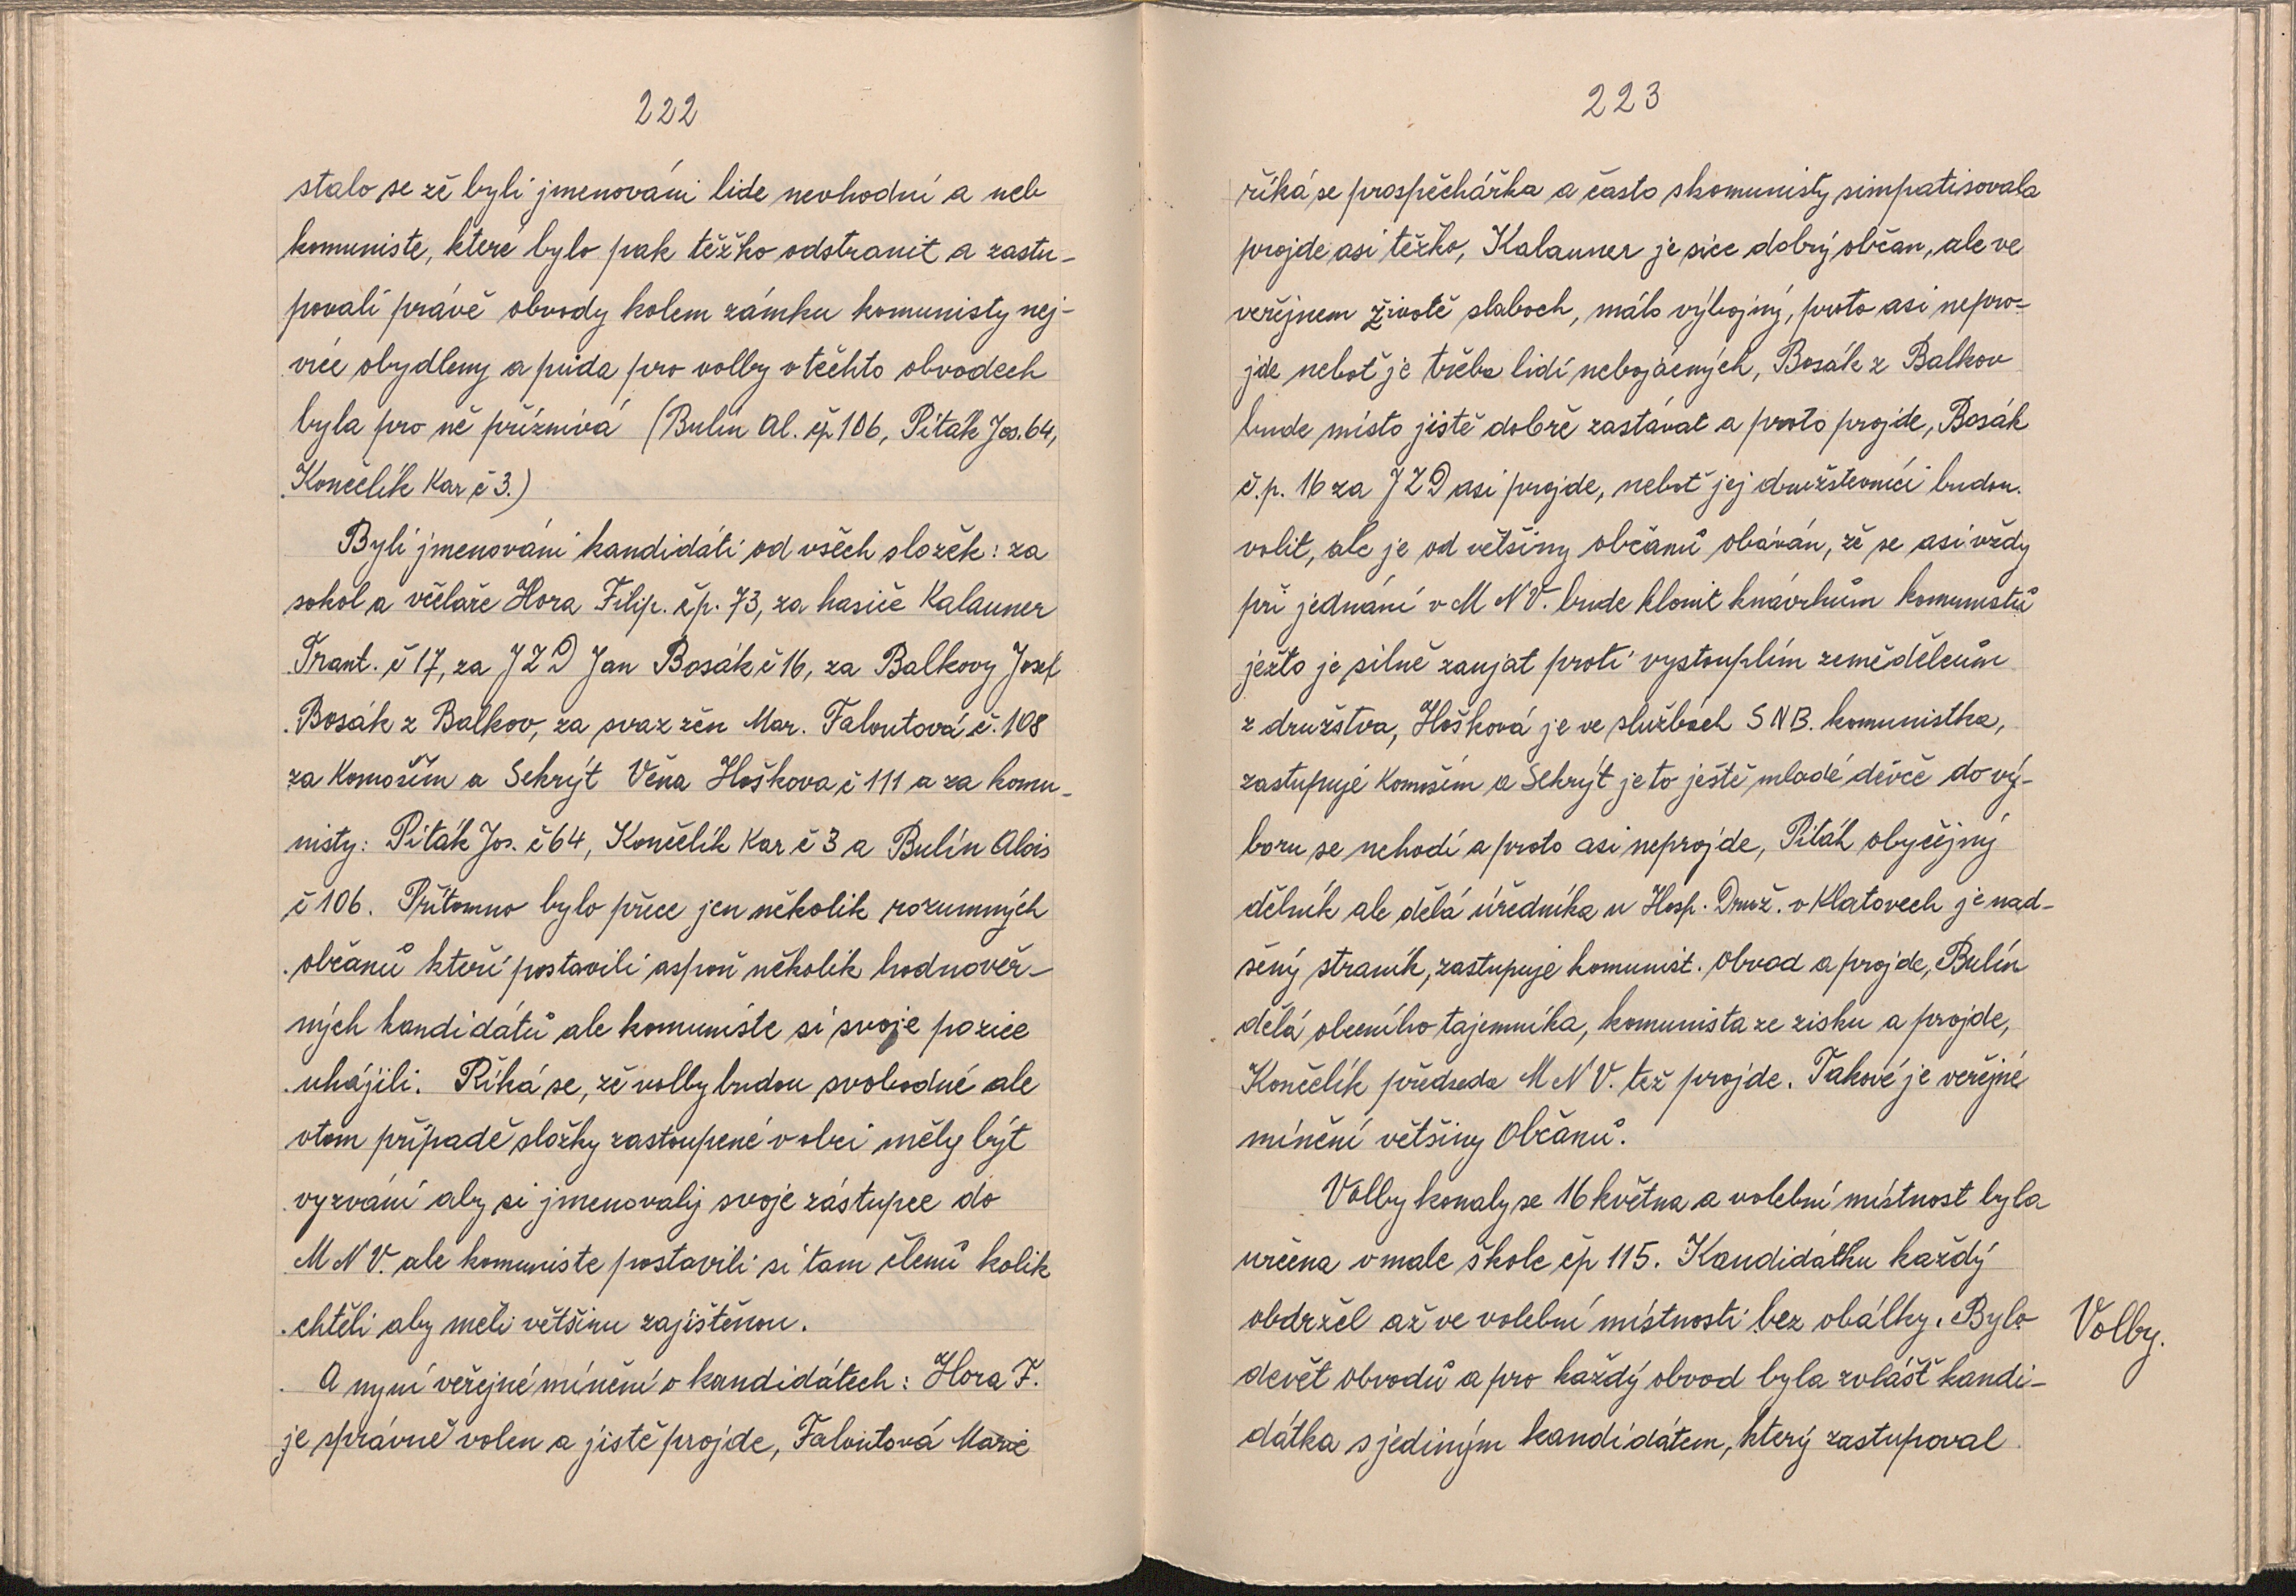 222
stalo se zě byli jmenováni lide nevhodní a neb
komuniste, které bylo pak těžko odstranit a zastu-
povali právě obvody kolem zámku komunisty nej-
více obydleny a půda pro volby v těchto obvodech
byla pro ně příznivá (Bulín Al. čp 106, Piták Jos. 64,
Končelík Kar č 3.)
Byli jmenováni kandidáti od všech složěk: za
sokol a včelaře Hora Filip. čp. 73, za hasiče Kalauner
Frant. č 17, za JZD Jan Bosák č 16, za Balkovy Josef
Bosák z Balkov, za svaz žěn Mar. Faloutová č. 108
za Komoším a Sekrýt Věna Hoškova č 111 a za komu-
nisty: Piták Jos. č 64, Končelík Kar č 3 a Bulín Alois
č 106. Přitomno bylo přece jen několik rozumných
občanů kteří postavili aspoň několik hodnověr-
ných kandidátů ale komuniste si svoje pozice
uhájili. Říká se, zě volby budou svobodné ale
vtom případě složky zastoupené v obci měly být
vyzváni aby si jmenovaly svoje zástupce do
M N V. ale komuniste postavili si tam členů kolik
chtěli aby meli většinu zajištěnou.
A nyní veřejné mínění o kandidátech: Hora F.
je správně volen a jistě projde, Faloutová Marie
223
říká se prospěchářka a často skomunisty simpatisovala
projde asi těžko, Kalauner je sice dobrý občan, ale ve
veřejnem životě slaboch, málo výbojný, proto asi nepro-
jde nebot je třeba lidí nebojácných, Bosák z Balkov
bude místo jistě dobře zastávat a proto projde, Bosák
č.p. 16 za JZD asi projde, nebot jej družstevníci budou
volit, ale je od většiny občanů obáván, zě se asi vždy
při jednání v M N V. bude klonit knávrhům komunistů
ježto je silně zaujat proti vystouplím zemědělcům
z družstva, Hošková je ve službách SNB. komunistka,
zastupuje Komoším a Sekrýt je to ještě mladé děvče do vý-
boru se nehodí a proto asi neprojde, Piták obyčejný
dělník ale dělá úředníka u Hosp. Druž. v Klatovech je nad-
šený straník, zastupuje komunist. obvod a projde, Bulín
dělá obecního tajemníka, komunista ze zisku a projde,
Končelík předseda M N V. též projde. Takové je veřejné
mínění většiny Občanů.
Volby konaly se 16 května a volební místnost byla
určena v male škole čp 115. Kandidátku každý
obdržel až ve volební místnosti bez obálky. Bylo
devět obvodů a pro každý obvod byla zvlášť kandi-
dátka s jediným kandidátem, který zastupoval
Volby.